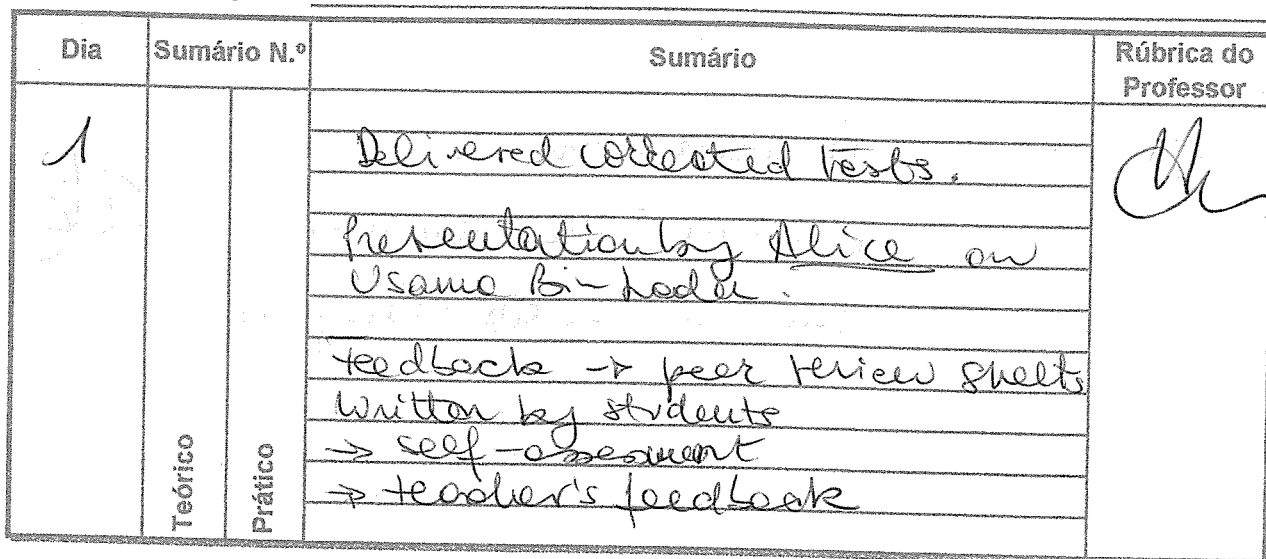 Dia Sumário N.º Sumário Rúbrica do Professor
1
Teórico
Prático
Delivered corrected tests.
Presentation by Alice on
Usama Bin-Laden.
feedback → peer review sheets
written by students
→ self-assesment
→ teacher's feedback